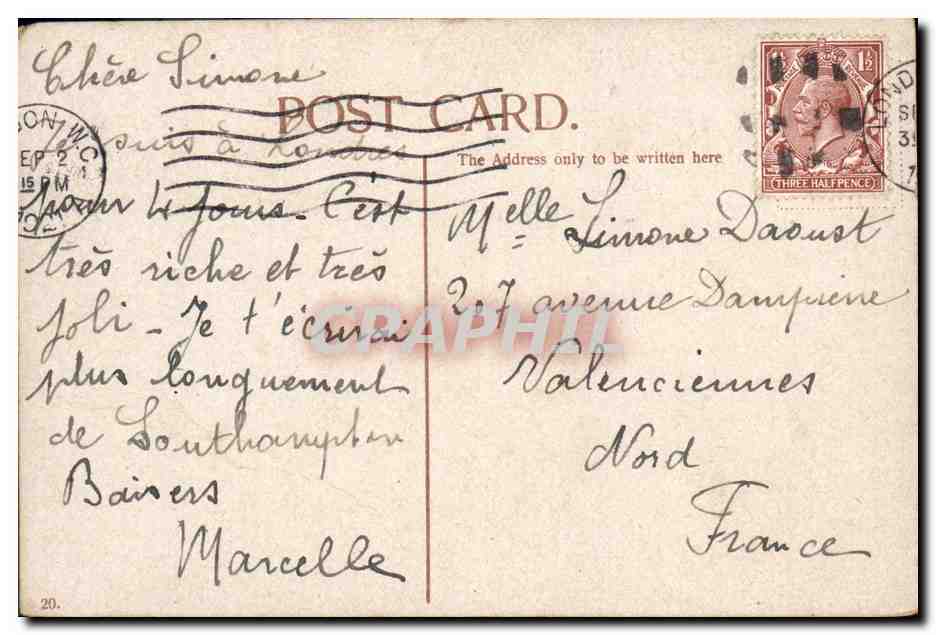 Chère Simone
POST CARD.
Je suis à Londres
pour 4 jours. C'est
très riche et très
joli - Je t'écrirai
plus longuement
de Southampton
Baisers
Marcelle
20.
The Address only to be written here
Melle Simone Daoust
207 avenue Dampierre
Valenciennes
Nord
France
THREE HALFPENCE
1½
SEP 2
15 PM
W.C.
GRAPHIL